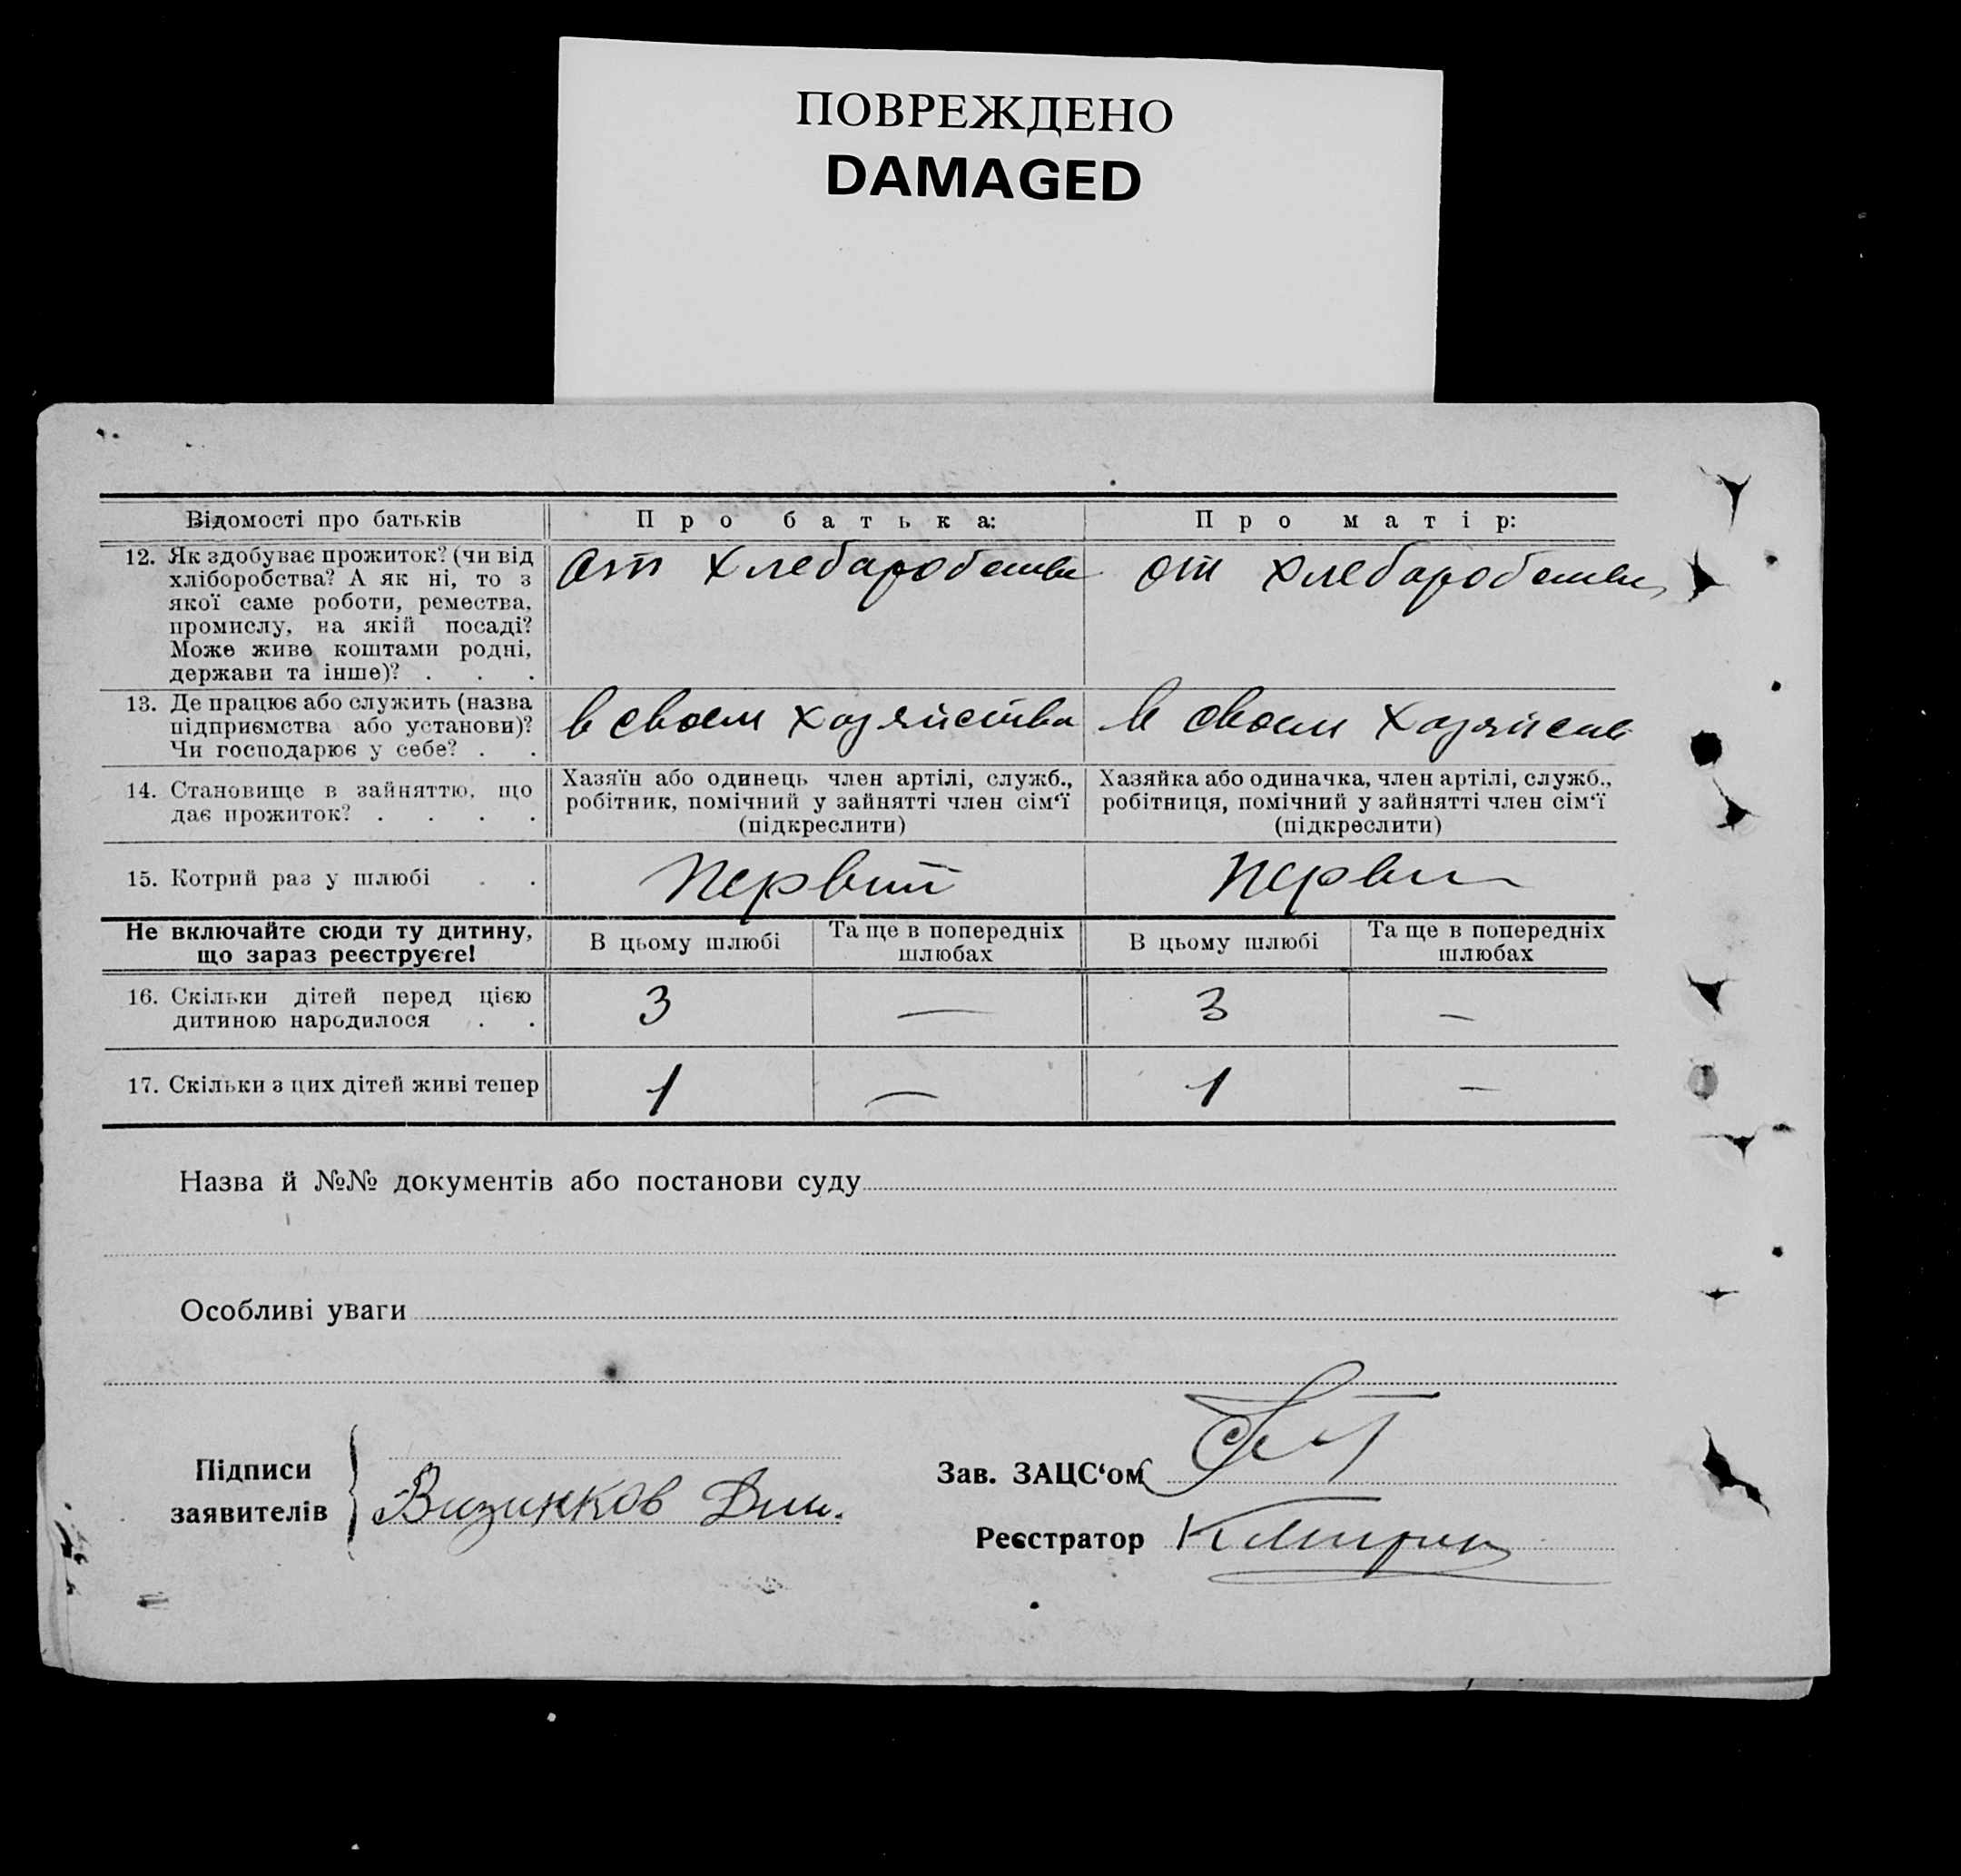 ПОВРЕЖДЕНО
DAMAGED
Відомості про батьків
Про батька:
Про матір:
12. Як здобуває прожиток? (чи від
хліборобства? А як ні, то з
якої саме роботи, ремества,
промислу, на якій посаді?
Може живе коштами родні,
держави та інше)? . . .
От хлебаробства
От хлебаробства
13. Де працює або служить (назва
підприємства або установи)?
Чи господарює у себе? . .
в своем хозяйства
в своем хозяйств
14. Становище в зайняттю, що
дає прожиток? . . . .
Хазяїн або одинець член артілі, служб.,
робітник, помічний у зайнятті член сім‘ї
(підкреслити)
Хазяйка або одиначка, член артілі, служб.,
робітниця, помічний у зайнятті член сім‘ї
(підкреслити)
15. Котрий раз у шлюбі . .
Первий
Перви
Не включайте сюди ту дитину,
що зараз реєструєте!
В цьому шлюбі
Та ще в попередніх
шлюбах
В цьому шлюбі
Та ще в попередніх
шлюбах
16. Скільки дітей перед цією
дитиною народилося . .
3
—
3
—
17. Скільки з цих дітей живі тепер
1
—
1
—
Назва й №№ документів або постанови суду
Особливі уваги
Підписи
заявителів
Визинков Дми.
Зав. ЗАЦС‘ом
Реєстратор